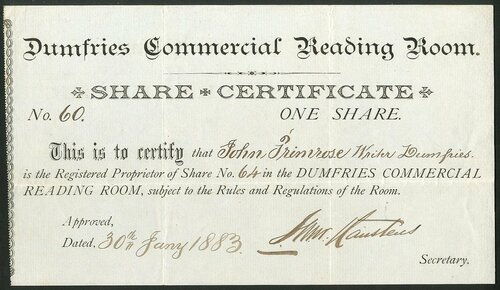 Dumfries Commercial Reading Room.
SHARE * CERTIFICATE
No. 60. ONE SHARE.
This is to certify that John Primrose Writer Dumfries.
is the Registered Proprietor of Share No. 64 in the DUMFRIES COMMERCIAL
READING ROOM, subject to the Rules and Regulations of the Room.
Approved,
Dated. 30th Jany 1883.
Secretary.